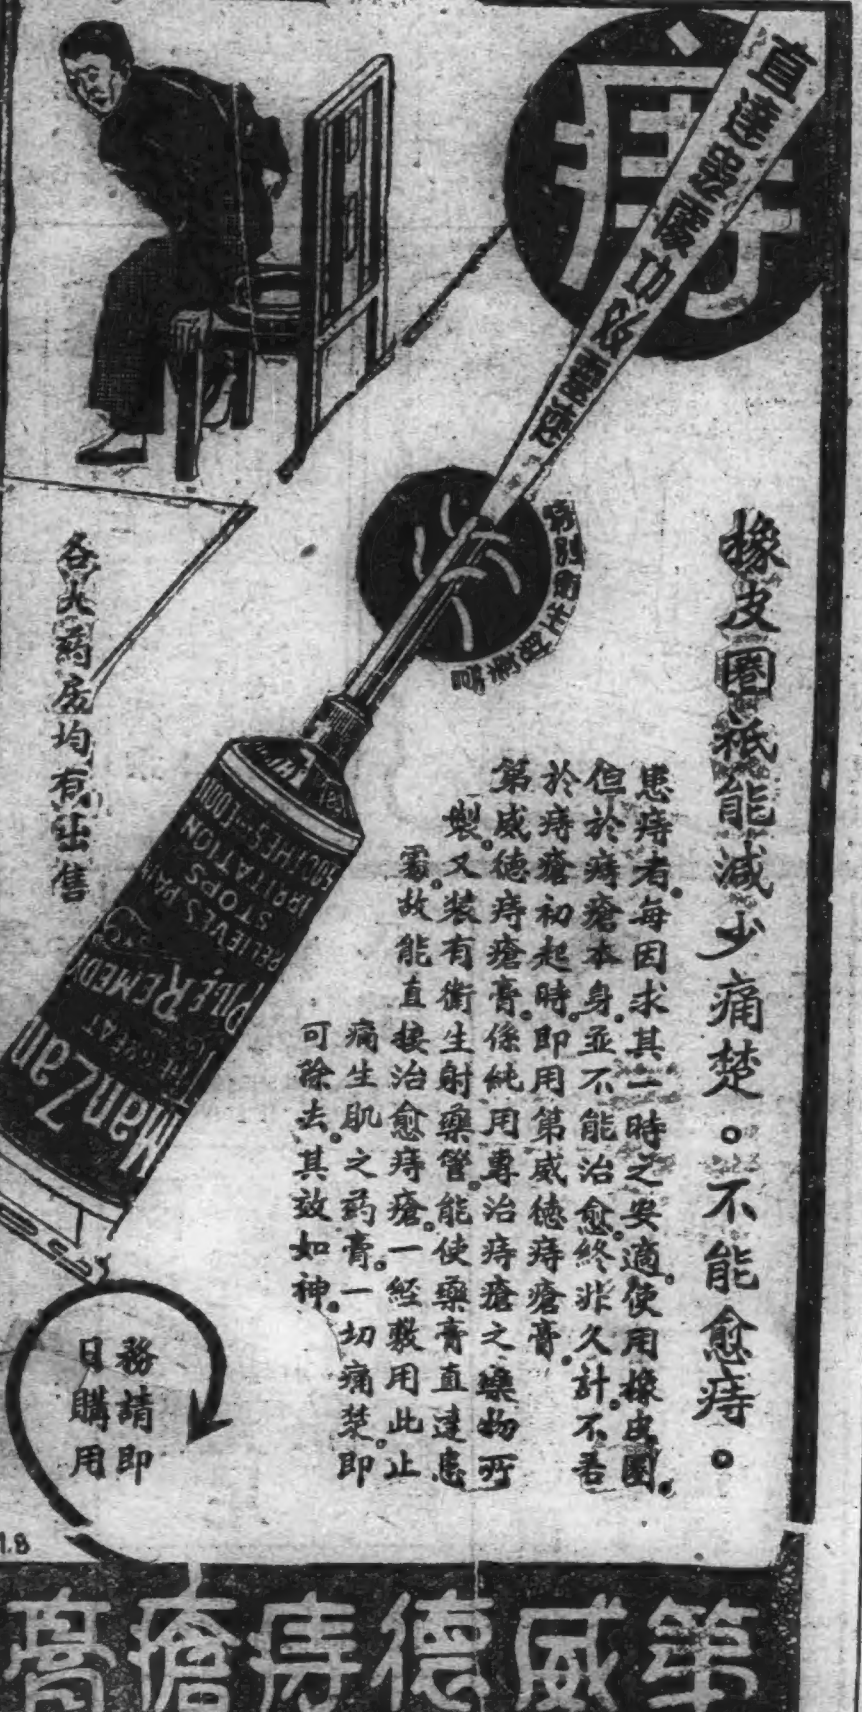 痔
直達患處功效靈捷
橡皮圈祇能減少痛楚。不能愈痔。
患痔者。每因求其一時之安適。使用橡皮圈。
但於痔瘡本身。並不能治愈。終非久計。不若
於痔瘡初起時。即用第威德痔瘡膏。
第威德痔瘡膏。係純用專治痔瘡之藥物所
製。又裝有衛生射藥管。能使藥膏直達患
處。故能直接治愈痔瘡。一經敷用此止
痛生肌之药膏。一切痛楚。即
可除去。其效如神。
各大葯房均有出售
ManZan
THE GREAT
PILE REMEDY
RELIEVES PAIN
STOPS IRRITATION
SOOTHES-COOLS
務請即
日購用
1.8
第威德痔瘡膏